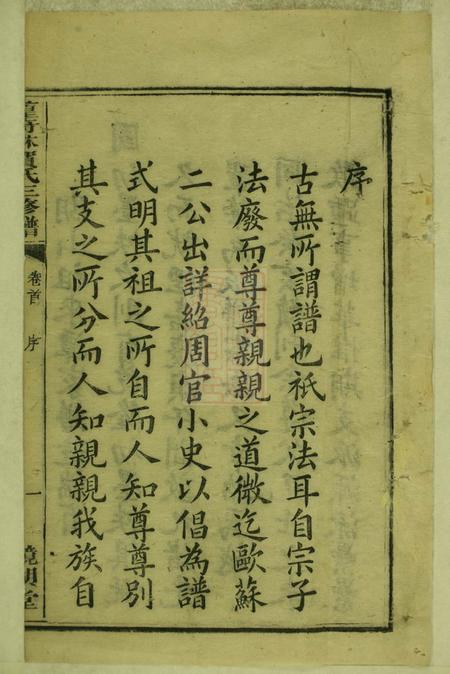 序
古無所謂譜也祇宗法耳自宗子
法廢而尊尊親親之道微迄歐蘇
二公出詳紹周官小史以倡為譜
式明其祖之所自而人知尊尊別
其支之所分而人知親親我族自
林賀氏三修譜
卷首
序
一
堂